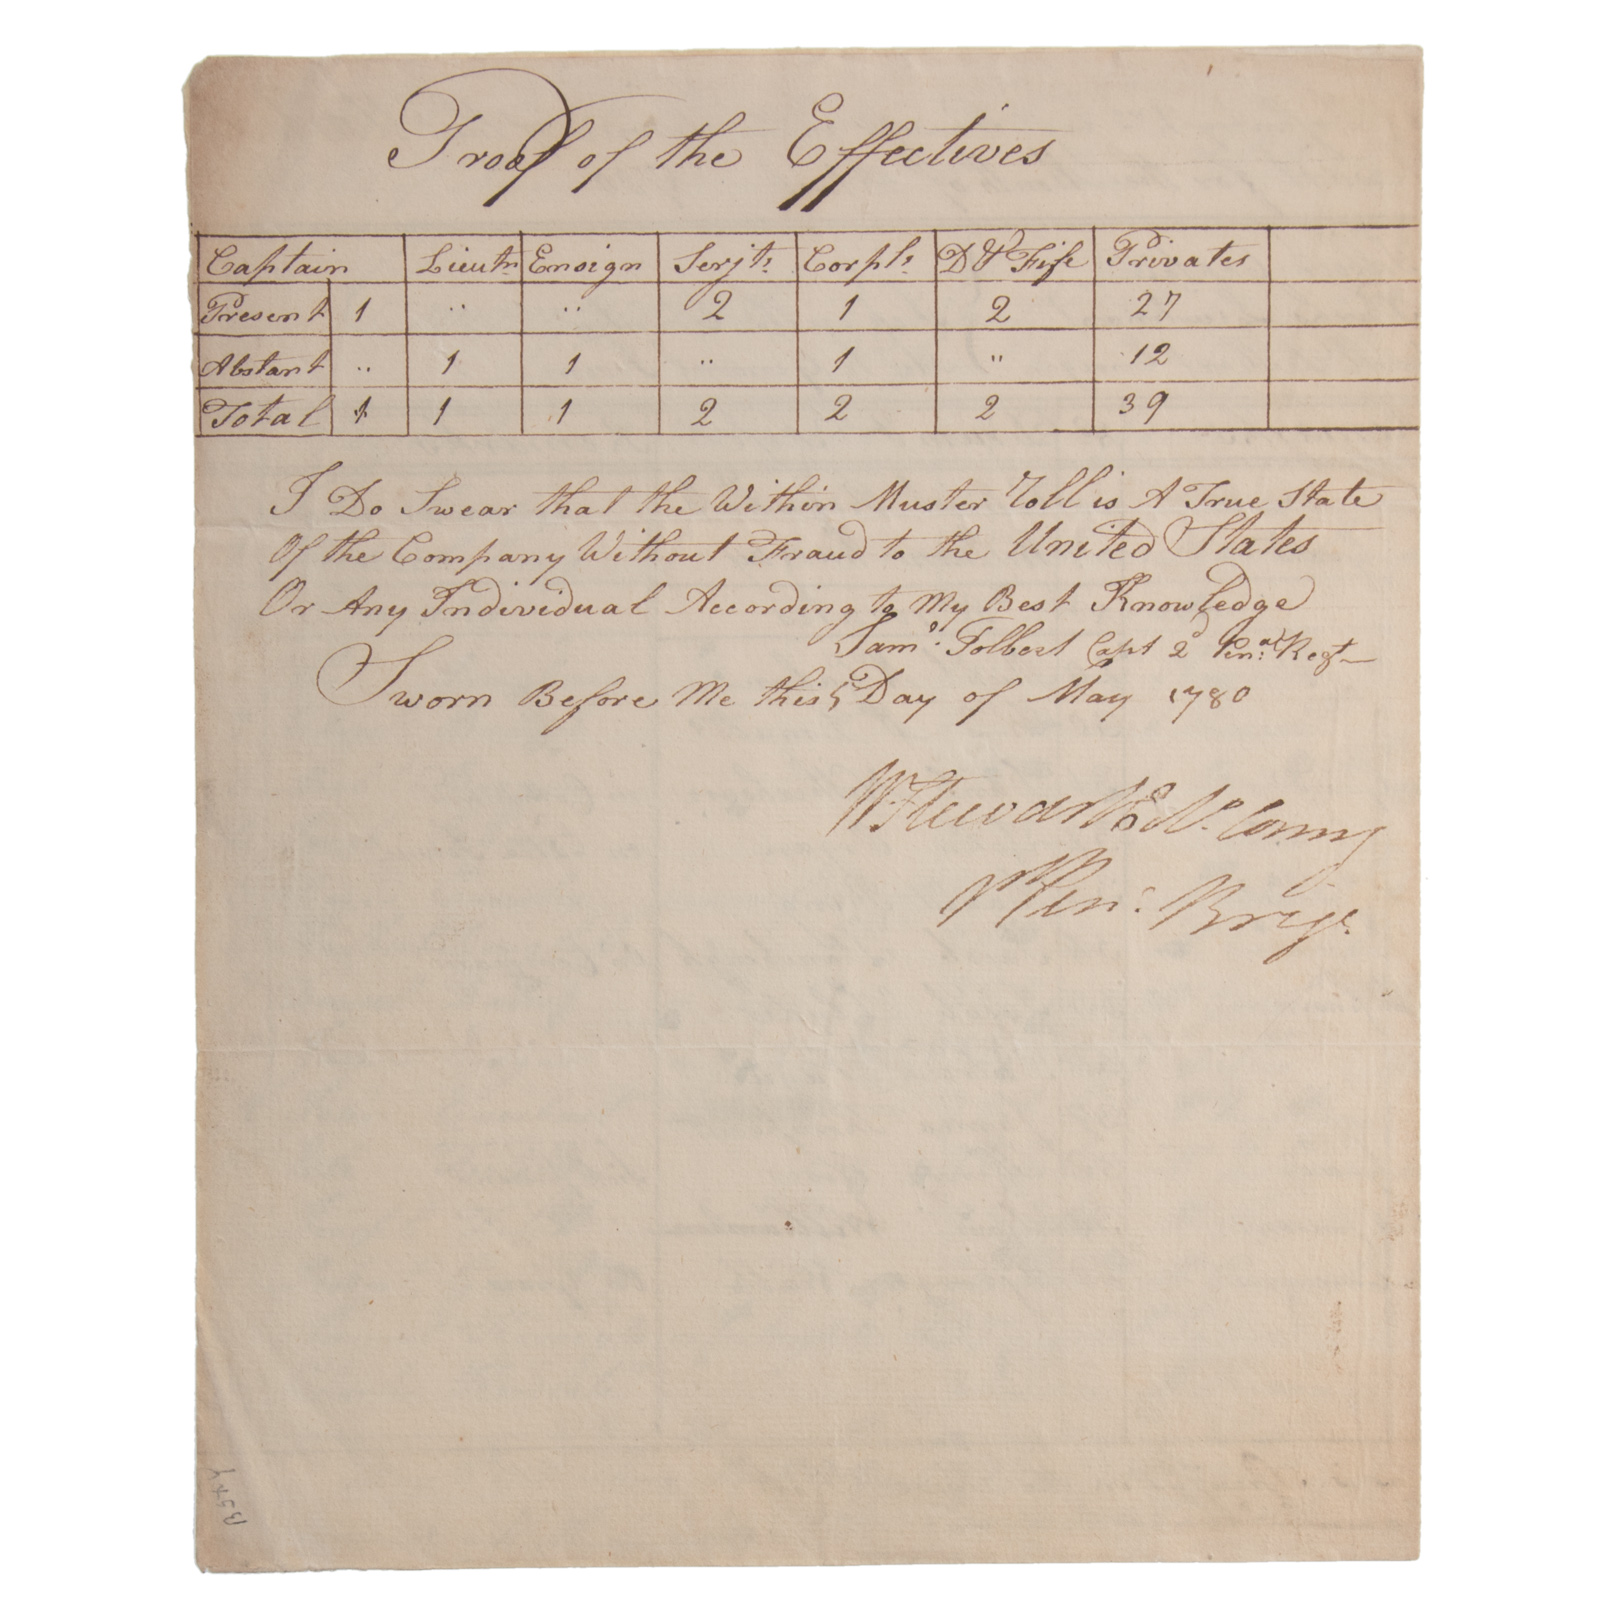 Proof of the Effectives
Captain Lieutn Ensign Serjts Corpls D & Fife Privates
Present 1 " " 2 1 2 27
Abstant " 1 1 " 1 " 12
Total 1 1 1 2 2 2 39
I Do Swear that the Within Muster Roll is A True State
Of the Company Without Fraud to the United States
Or Any Individual According to My Best Knowledge
Saml: Tolbert Capt 2d Pena: Regt
Sworn Before Me this 5 Day of May 1780
W Stewart Col. Comg
Pen: Brige.
B54Y